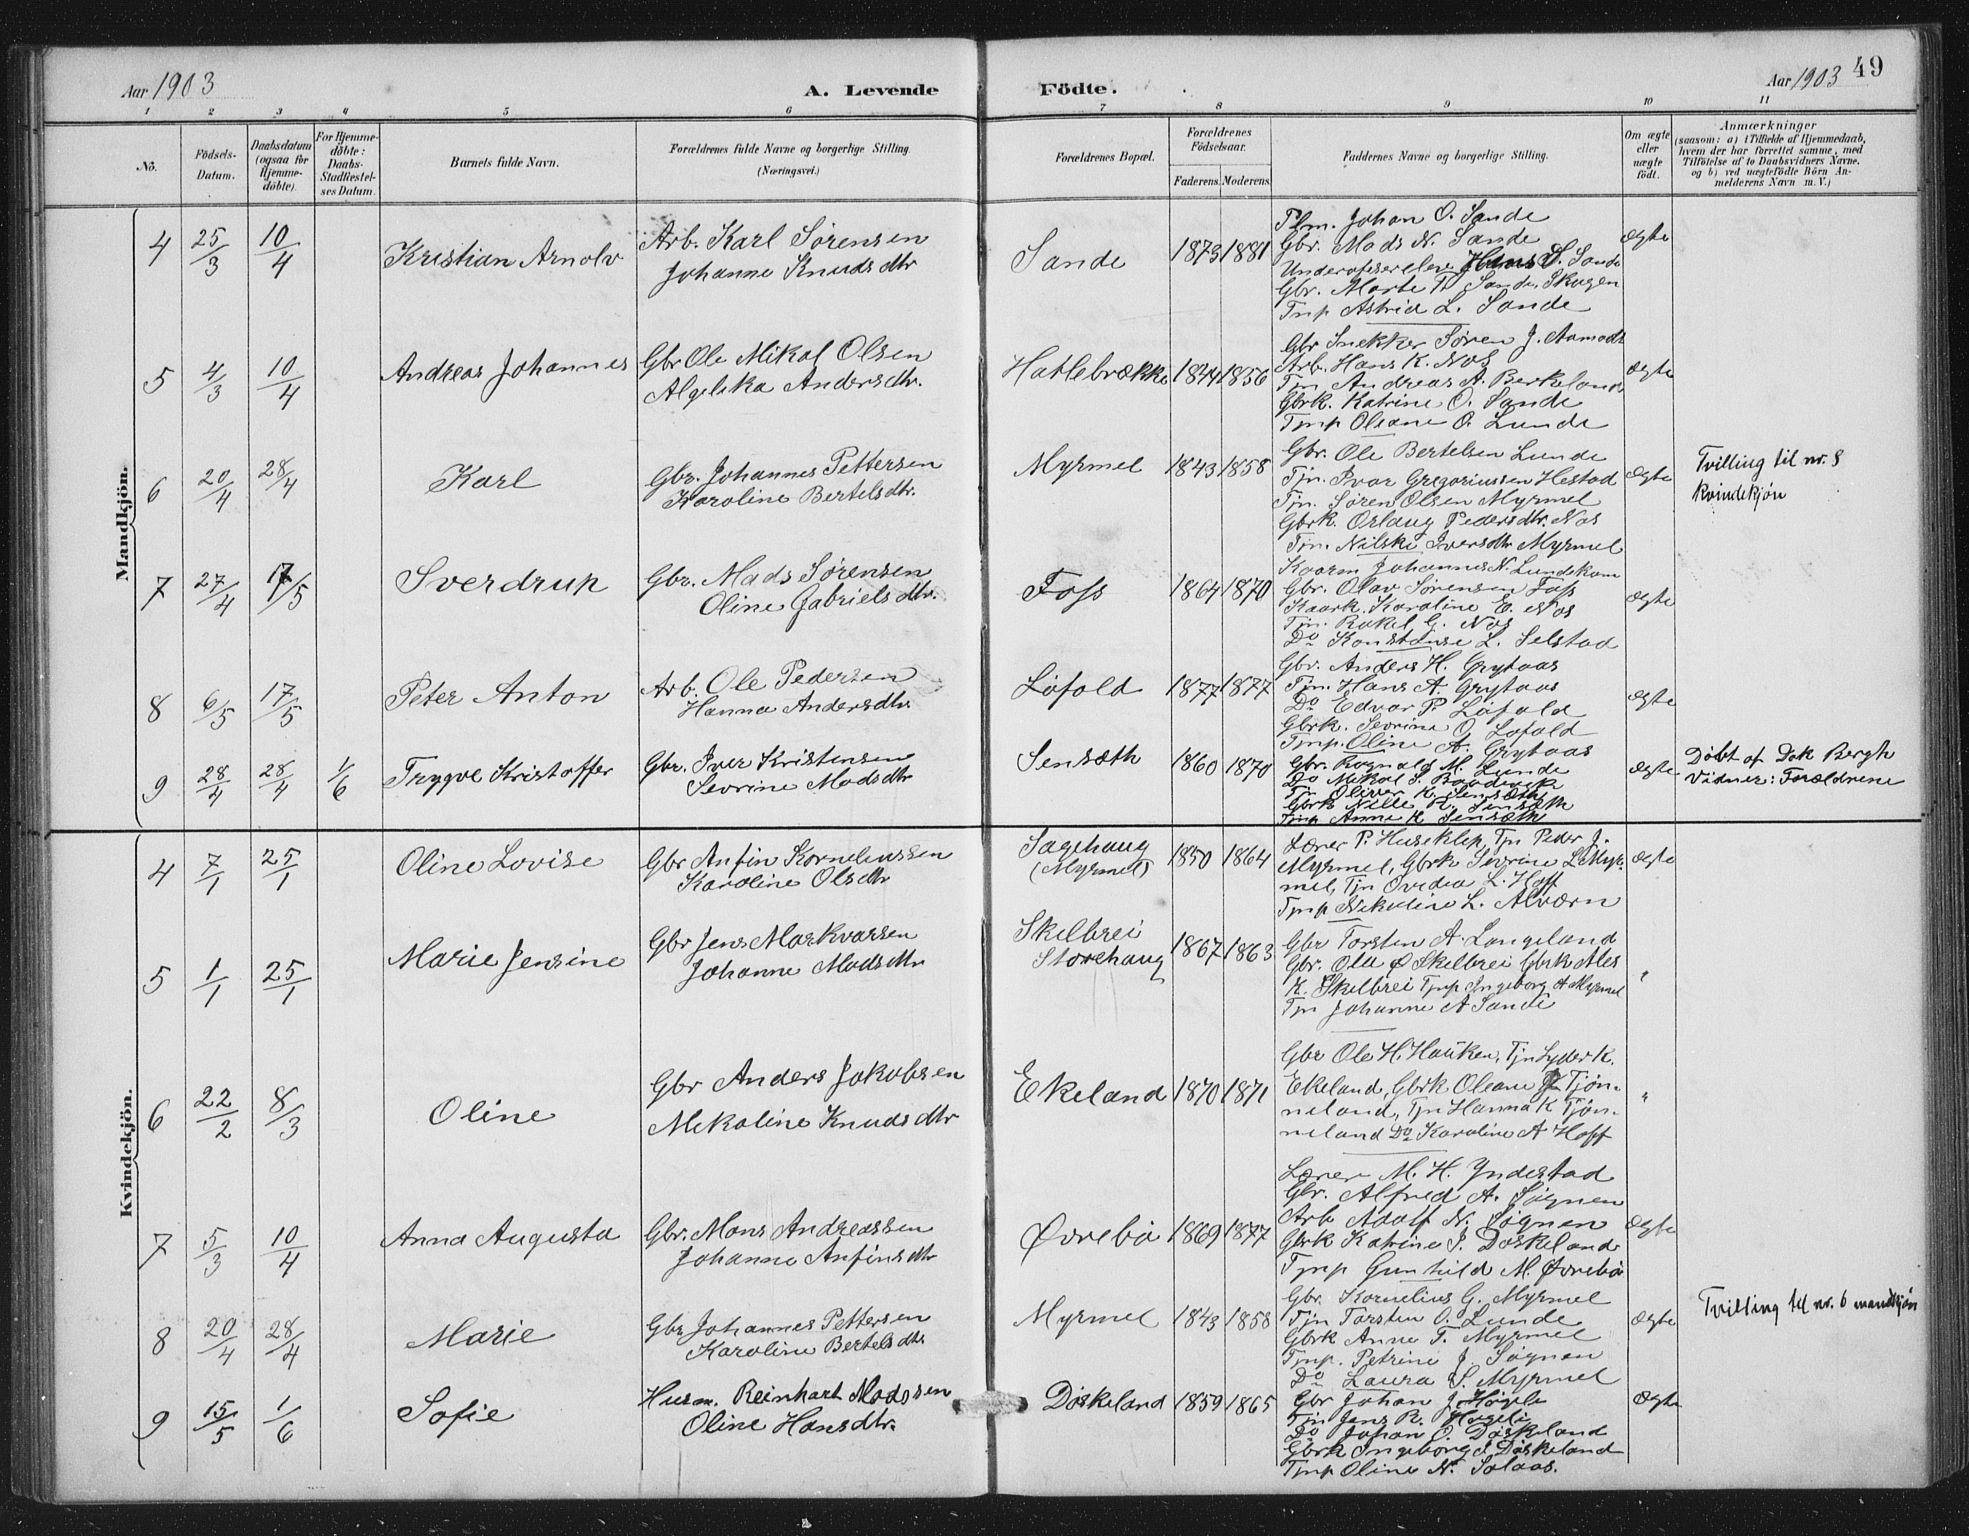 Aar 1903
A. Levende Födte.
Aar 1903 49
1 2 3 4 5 6 7 8 9 10 11
No.
Födsels-
Datum.
Daabsdatum
(ogsaa for
Hjemme-
döbte).
For Hjemme-
döbte:
Daabs-
Stadfestel-
ses Datum.
Barnets fulde Navn.
Forældrenes fulde Navne og borgerlige Stilling
(Næringsvei.)
Forældrenes Bopæl.
Forældrenes
Födselsaar.
Faderens. Moderens.
Faddernes Navne og borgerlige Stilling.
Om ægte
eller
uægte
födt.
Anmærkninger
(saasom: a) i Tilfælde af Hjemmedaab,
hvem der har forrettet samme, med
Tilföielse af to Daabsvidners Navne.
og b) ved uægtefödte Börn An-
melderens Navn m. V.)
Mandkjön.
4 25/3 10/4 Kristian Arnolv
Arb. Karl Sørensen
Johanne Knudsdtr
Sande 1873 1881
Plm. Johan O. Sande
Gbr. Mads N. Sande
Underofficerelev Hans S. Sande
Gbr. Marte Sande, Skogen
Tmp Astrid L. Sande
Ægte
5 4/3 10/4 Andreas Johannes
Gbr Ole Mikal Olsen
Algelska Andersdtr.
Hatlebrække 1844 1856
Gbr Snekker Søren J. Aamodt
Arb. Hans K. Nos
Tjn Andreas A. Berkeland
Gbrk. Katrine O. Sande
Tmp Oleane O. Lunde
Ægte
6 20/4 28/4 Karl
Gbr. Johannes Pettersen
Karoline Bertelsdtr.
Myrmel 1843 1858
Gbr. Ole Bertelsen Lunde
Tjn. Ivar Gregoriussen Hestad
Tjn. Søren Olsen Myrmel
Gbrk. Orlaug Pedersdtr. Nos
Tjn. Nilski Iversdtr Myrmel
Ægte
Tvilling til nr. 8
kvindekjön
7 27/4 17/5 Sverdrup
Gbr. Mads Sørensen
Oline Gabrielsdtr.
Foss 1864 1870
Kaarm Johannes N. Lundekam
Gbr. Olav Sørensen Foss
Kaark. Karoline E. Nos
Tjn. Rakel G. Nos
Do Konstanse L. Selstad
Ægte
8 6/5 17/5 Peter Anton
Arb. Ole Pedersen
Hanna Andersdtr
Löfold 1877 1877
Gbr. Anders H. Grytaas
Tjn. Hans A. Grytaas
Do Edvar P. Löfold
Gbrk. Sevrine O. Löfold
Tmp. Oline A. Grytaas
Ægte
9 28/4 28/4 1/6 Trygve Kristoffer
Gbr. Iver Kristensen
Sevrine Madsdtr
Sensæth 1860 1870
Gbr. Rognald M. Lunde
Do Mikal S.
Tjn Oliver K. Sensæth
Gbrk Nille R. Sensæth
Tmp Anne K Sensæth
Ægte
Döbt af Dok Bergh
Vidner: Forældrene
Kvindekjön.
4 7/1 25/1 Oline Lovise
Gbr Anfin Korneliussen
Karoline Olsdtr
Sagehaug
(Myrmel) 1850 1864
Lærer P. Huseklep, Tjn Peder J.
Myrmel, Gbrk Sevrine L Myr-
mel, Tjn Ovedia L. Hoff
Tmp Nikoline L. Alværn
Ægte
5 1/1 25/1 Marie Jensine
Gbr Jens Markvarsen
Johanne Madsdtr
Skelbrei
Storehaug 1867 1863
Gbr Torsten A. Langeland
Gbr. Ola Ø Skelbrei Gbrk Ales
K. Skelbrei Tmp Ingeborg A Myrmel
Tjn Johanne A Sande
"
6 22/2 8/3 Oline
Gbr Anders Jakobsen
Mekoline Knudsdtr
Ekeland 1870 1871
Gbr Ole H. Hauken, Tjn Lyder K.
Ekeland, Gbrk Oleane Tjön-
neland, Tjn Hanna K Tjön-
neland Do Karoline A Hoff
"
7 5/3 10/4 Anna Augusta
Gbr. Mons Andreassen
Johanne Anfinsdtr
Øvrebö 1869 1877
Lærer M. H. Yndestad
Gbr. Alfred A. Søgnen
Arb Adolf N. Søgnen
Gbrk Katrine J. Döskeland
Tjmp Gunhild M. Øvrebö
Ægte
8 20/4 28/4 Marie
Gbr Johannes Pettersen
Karoline Bertelsdtr
Myrmel 1843 1858
Gbr. Kornelius G. Myrmel
Tjn Torsten O. Lunde
Gbrk Anne T. Myrmel
Tmp. Petrine J Søgnen
Do Laura S. Myrmel
Ægte
Tvilling til nr. 6 mandkjön
9 15/5 1/6 Sofie
Husm. Reinhart Madssen
Oline Hansdtr.
Döskeland 1859 1865
Gbr Johan J. Högeli
Tjn Jens R. Högeli
Do Johan O. Döskeland
Gbrk Ingeborg J Döskeland
Tmp Oline N. Solaas.
Ægte